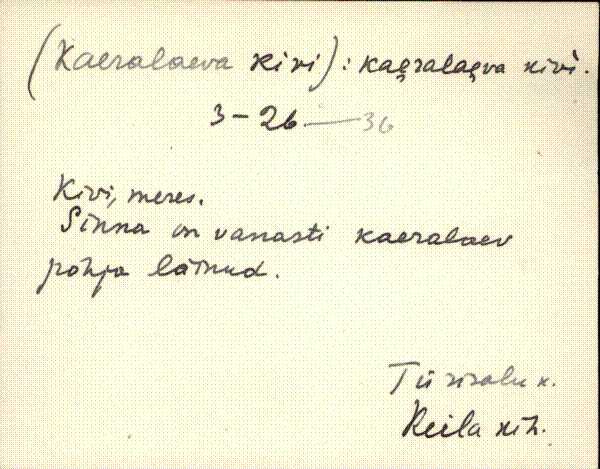 (Kaeralaeva kivi): kae̬ralae̬va kivi.
3-26 — 36
Kivi, meres.
Sinna on vanasti kaeralaev
põhja läinud.
Türisalu k.
Keila khk.